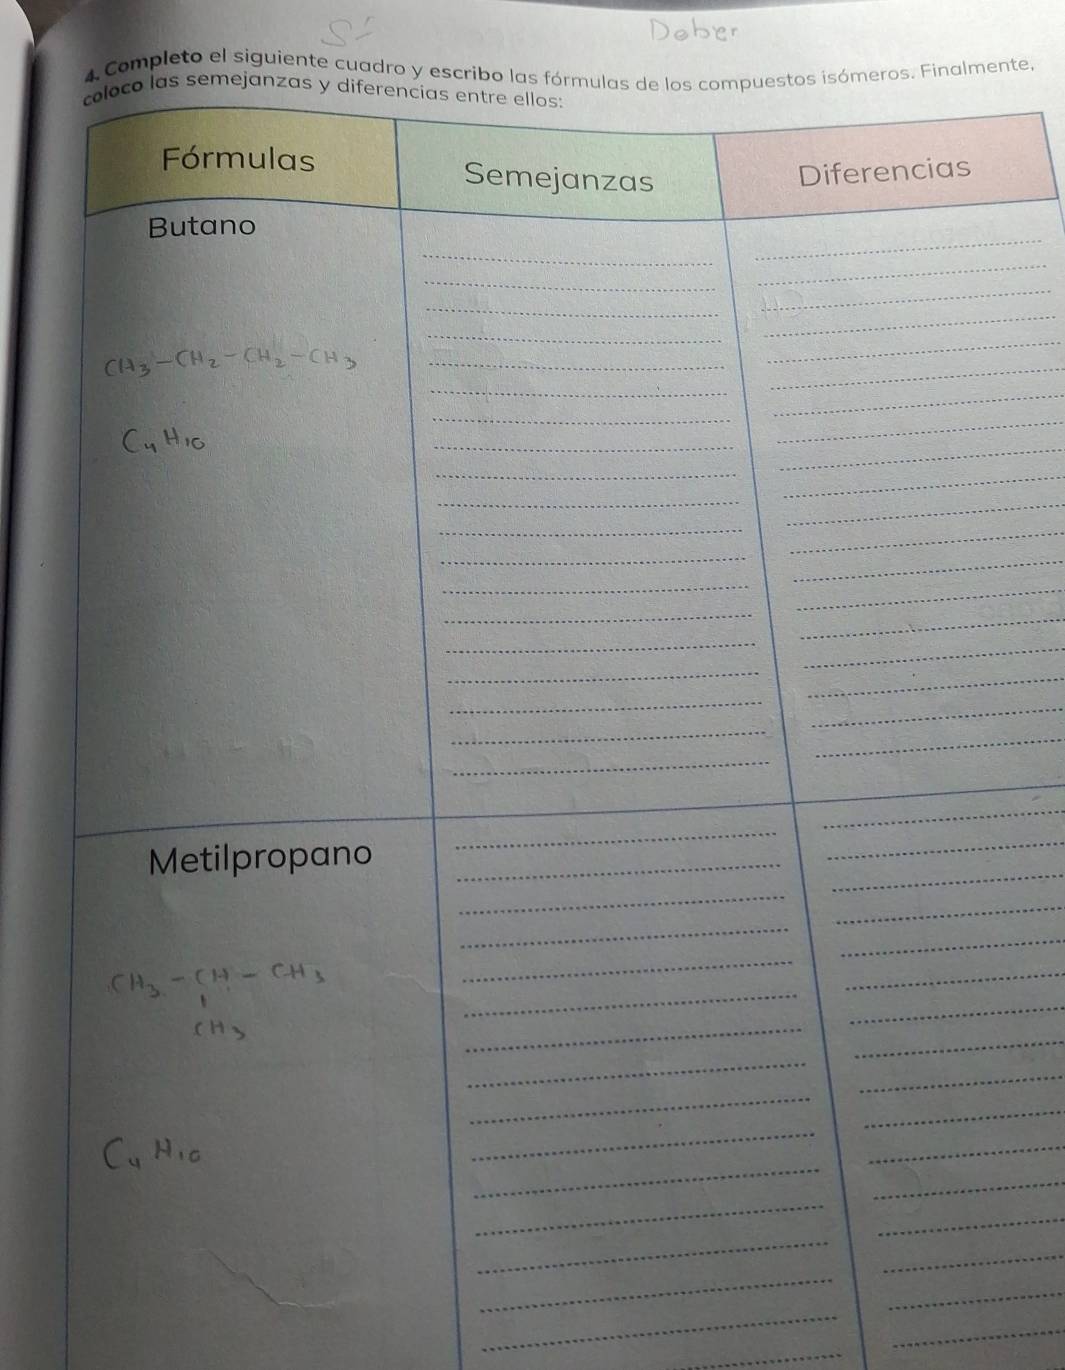 Sí Deber
4. Completo el siguiente cuadro y escribo las fórmulas de los compuestos isómeros. Finalmente,
coloco las semejanzas y diferencias entre ellos:
Fórmulas Semejanzas Diferencias
Butano
CH3-CH2-CH2-CH3
C4H10
Metilpropano
CH3-CH-CH3
CH3
C4H10